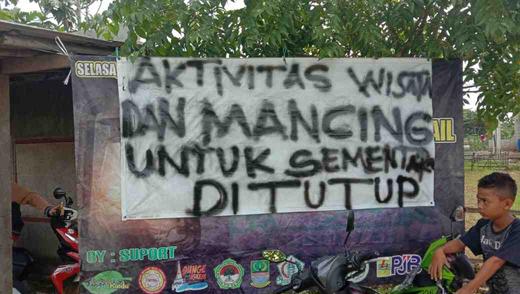 SELASA
AKTIVITAS WISATA
DAN MANCING
UNTUK SEMENTARA
DITUTUP
BY : SUPORT
PJB